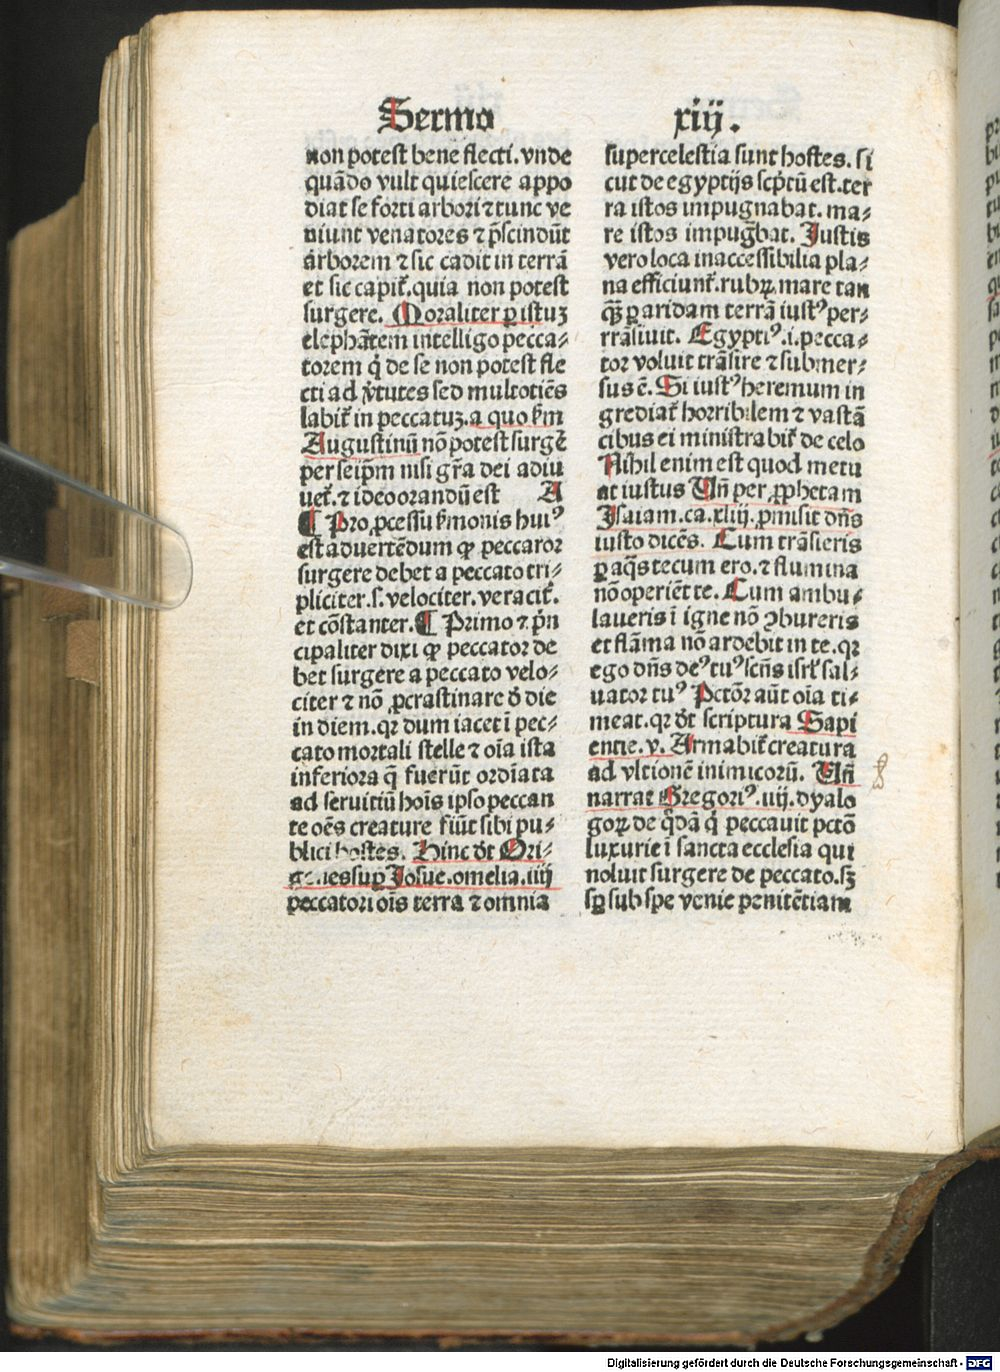 Sermo xiij.
non potest bene flecti. vnde
quãdo vult quiescere appo
diat se forti arbori ⁊ tunc ve
niunt venatores ⁊ p̃scindũt
arborem ⁊ sic cadit in terrã
et sic capit᷑. quia non potest
surgere. Moraliter ꝑ istuꝫ
elephãtem intelligo pecca⸗
torem q̇ de se non potest fle
cti ad v̓tutes sed multotiẽs
labit᷑ in peccatuꝫ. a quo ẞm
Augustinũ nõ potest surgẽ
per seip̃m nisi gr̃a dei adiu
uet᷑. ⁊ ideo orandũ est A
¶ Pro ꝓcessu ẞmonis huiꝰ
est aduertẽdum ꝙ peccator
surgere debet a peccato tri⸗
pliciter. s. velociter. veracit᷑.
et cõstanter. ¶ Primo ⁊ p̃n
cipaliter dixi ꝙ peccator de
bet surgere a peccato velo⸗
citer ⁊ nõ ꝓcrastinare d̓ die
in diem. qꝛ dum iacet ĩ pec⸗
cato mortali stelle ⁊ oĩa ista
inferiora q̃ fuerũt ordĩata
ad seruitiũ hoĩs ipso peccan
te oẽs creature fiũt sibi pu⸗
blici hostes. Hinc d̓t Ori⸗
genes suꝑ Josue. omelia. iiij
peccatori oĩs terra ⁊ omnia
supercelestia sunt hostes. si
cut de egyptijs scp̃tũ est. ter
ra istos impugnabat. ma⸗
re istos impugͣbat. Justis
vero loca inaccessibilia pla⸗
na efficiunt᷑. rubꝝ mare tan
qͣꝫ ꝑ aridam terrã iustꝰ per⸗
trãsiuit. Egyptiꝰ. i. pecca⸗
tor voluit trãsire ⁊ submer⸗
sus ẽ. Si iustꝰ heremum in
grediat᷑ horribilem ⁊ vastã
cibus ei ministrabit᷑ de celo
Nihil enim est quod metu
at iustus Vñ per ꝓphetam
Isaiam. ca. xliij. ꝓmisit dñs
iusto dicẽs. Cum trãsieris
ꝑ aq̃s tecum ero. ⁊ flumina
nõ operiẽt te. Cum ambu⸗
laueris ĩ igne nõ ꝯbureris
et flãma nõ ardebit in te. qꝛ
ego dñs deꝰ tuꝰ scñs isrl̓ sal⸗
uator tuꝰ Pctõr aũt oĩa ti⸗
meat. qꝛ d̓t scriptura Sapi
entie. v. Armabit᷑ creatura
ad vltionẽ inimicorũ. Vñ
narrat Gregoriꝰ. iiij. dyalo
goꝝ de q̇dã q̇ peccauit pctõ
luxurie ĩ sancta ecclesia qui
noluit surgere de peccato. sꝫ
sꝑ sub spe venie penitẽtiam
Digitalisierung gefördert durch die Deutsche Forschungsgemeinschaft - DFG